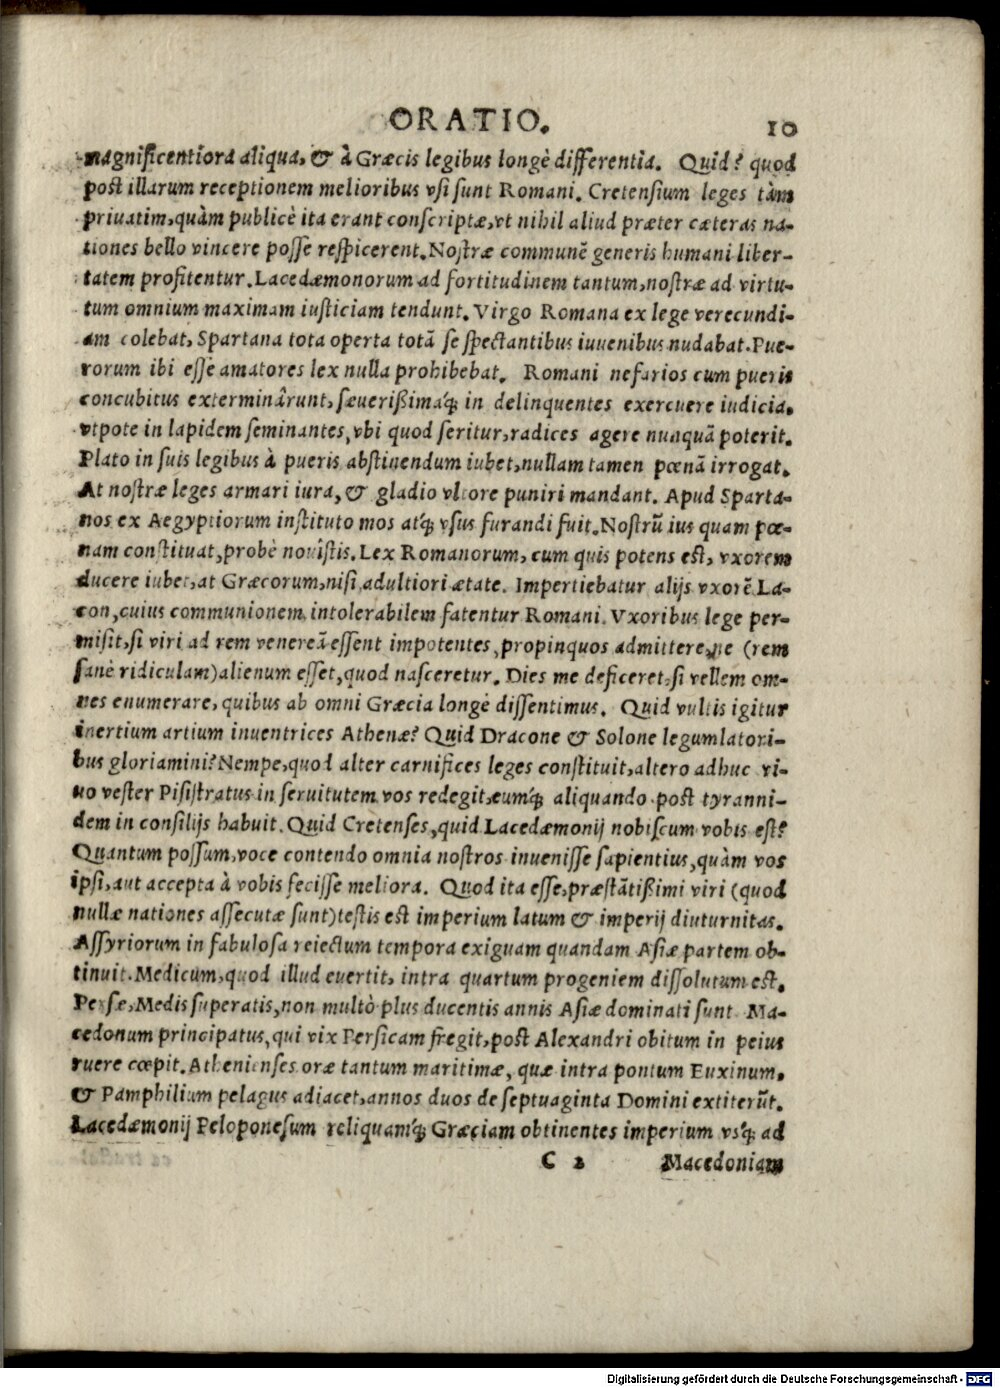 ORATIO. 10
magnificentiora aliqua, & à Græcis legibus longè differentia. Quid? quod
post illarum receptionem melioribus vsi sunt Romani. Cretensium leges tàm
priuatim, quàm publicè ita erant conscriptæ, vt nihil aliud præter cæteras na-
tiones bello vincere posse respicerent. Nostræ communē generis humani liber-
tatem profitentur. Lacedæmonorum ad fortitudinem tantum, nostræ ad virtu-
tum omnium maximam iusticiam tendunt. Virgo Romana ex lege verecundi-
am colebat, Spartana tota operta totā se spectantibus iuuenibus nudabat. Pue-
rorum ibi esse amatores lex nulla prohibebat. Romani nefarios cum pueris
concubitus exterminârunt, sæuerißimáq; in delinquentes exercuere iudicia,
vtpote in lapidem seminantes, vbi quod seritur, radices agere nunquā poterit.
Plato in suis legibus à pueris abstinendum iubet, nullam tamen pœnā irrogat.
At nostræ leges armari iura, & gladio vltore puniri mandant. Apud Sparta-
nos ex Aegyptiorum instituto mos atq́; vsus furandi fuit. Nostrū ius quam pœ-
nam constituat, probè nouîstis. Lex Romanorum, cum quis potens est, vxorem
ducere iubet, at Græcorum, nisi adultiori ætate. Impertiebatur alijs vxorē La-
con, cuius communionem intolerabilem fatentur Romani. Vxoribus lege per-
misit, si viri ad rem venereā essent impotentes, propinquos admittere, ne (rem
sanè ridiculam) alienum esset, quod nasceretur. Dies me deficeret, si vellem om-
nes enumerare, quibus ab omni Græcia longè dissentimus. Quid vultis igitur
inertium artium inuentrices Athenæ? Quid Dracone & Solone legumlatori-
bus gloriamini? Nempe, quod alter carnifices leges constituit, altero adhuc vi-
uo vester Pisistratus in seruitutem vos redegit, eumq́; aliquando post tyranni-
dem in consilijs habuit. Quid Cretenses, quid Lacedæmonij nobiscum vobis est?
Quantum possum, voce contendo omnia nostros inuenisse sapientius, quàm vos
ipsi, aut accepta à vobis fecisse meliora. Quod ita esse, præstātißimi viri (quod
nullæ nationes assecutæ sunt) testis est imperium latum & imperij diuturnitas.
Assyriorum in fabulosa reiectum tempora exiguam quandam Asiæ partem ob-
tinuit. Medicum, quod illud euertit, intra quartum progeniem dissolutum est.
Persæ, Medis superatis, non multò plus ducentis annis Asiæ dominati sunt Ma-
cedonum principatus, qui vix Persicam fregit, post Alexandri obitum in peius
ruere cœpit. Athenienses oræ tantum maritimæ, quæ intra pontum Euxinum,
& Pamphilium pelagus adiacet, annos duos de septuaginta Domini extiterūt.
Lacedæmonij Peloponesum reliquamq́; Græciam obtinentes imperium vsq́; ad
C 2 Macedoniam
Digitalisierung gefördert durch die Deutsche Forschungsgemeinschaft - DFG